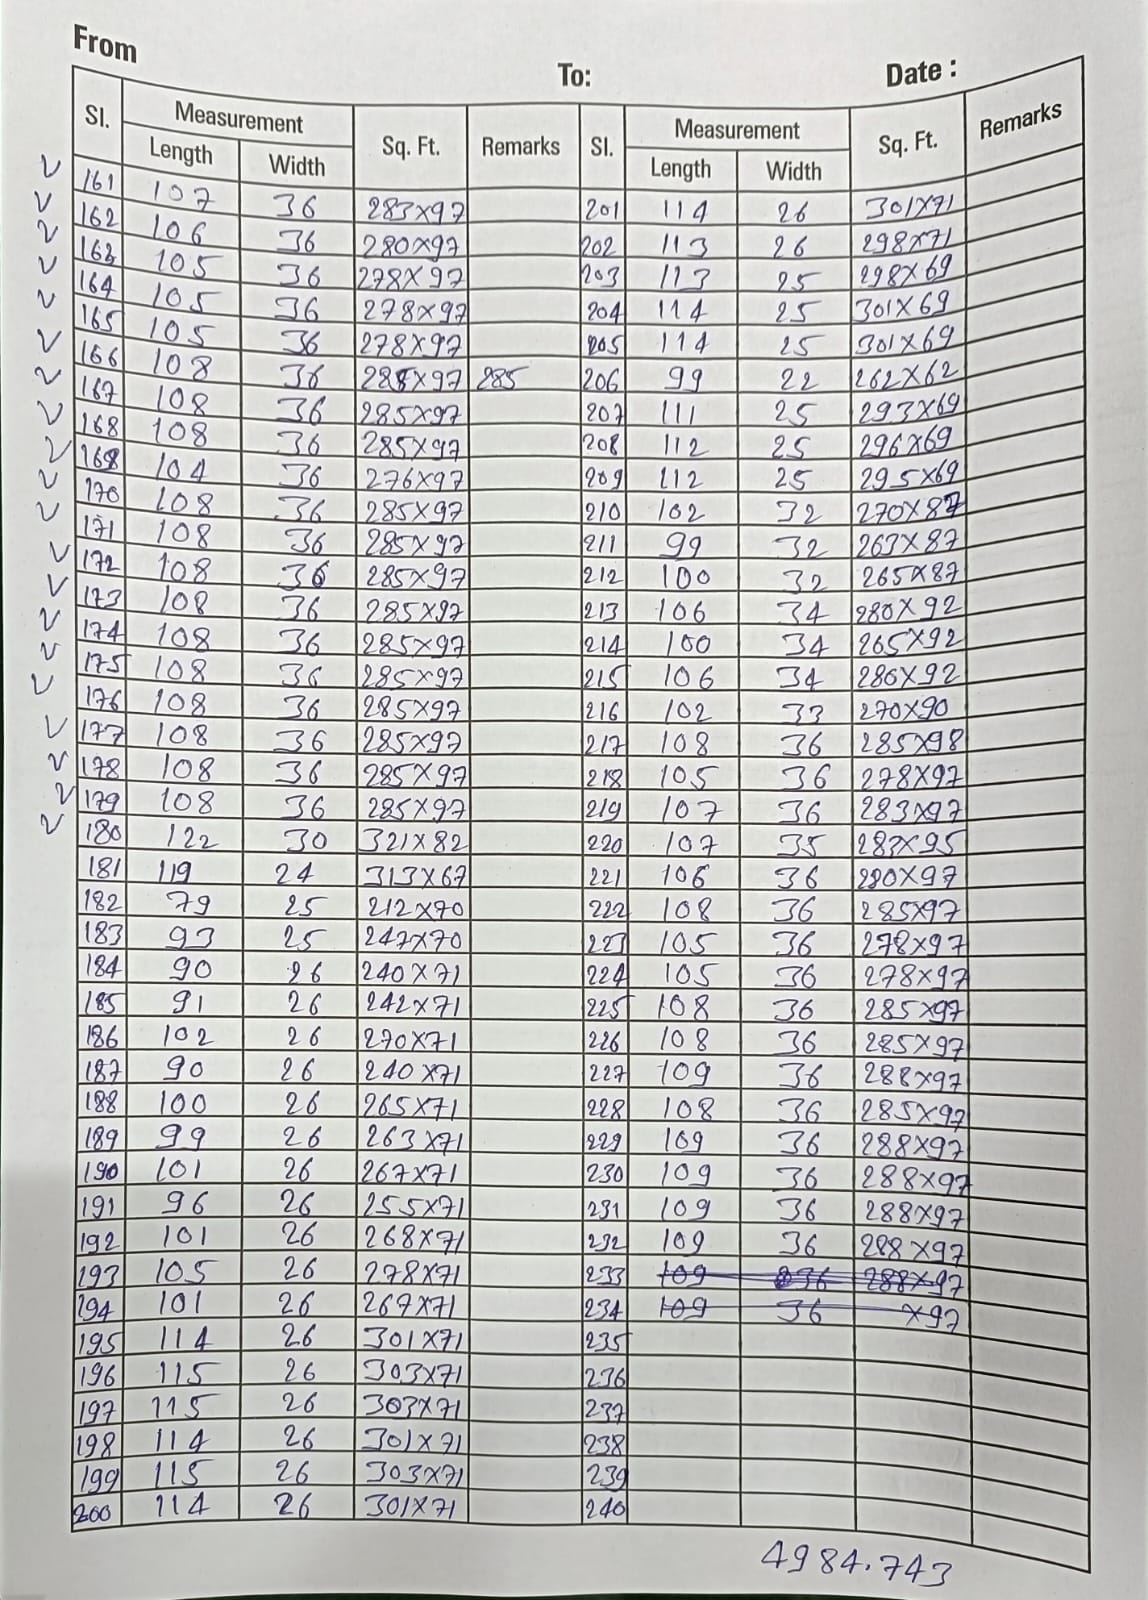 From To: Date :
Sl. Measurement Sq. Ft. Remarks Sl. Measurement Sq. Ft. Remarks
Length Width Length Width
161 107 36 283×97 201 114 26 301×71
162 106 36 280×97 202 113 26 298×71
163 105 36 278×97 203 113 25 298×69
164 105 36 278×97 204 114 25 301×69
165 105 36 278×97 205 114 25 301×69
166 108 36 285×97 285 206 99 22 262×62
167 108 36 285×97 207 111 25 293×69
168 108 36 285×97 208 112 25 296×69
169 104 36 276×97 209 112 25 295×69
170 108 36 285×97 210 102 32 270×87
171 108 36 285×97 211 99 32 263×87
172 108 36 285×97 212 100 32 265×87
173 108 36 285×97 213 106 34 280×92
174 108 36 285×97 214 100 34 265×92
175 108 36 285×97 215 106 34 280×92
176 108 36 285×97 216 102 33 270×90
177 108 36 285×97 217 108 36 285×98
178 108 36 285×97 218 105 36 278×97
179 108 36 285×97 219 107 36 283×97
180 122 30 321×82 220 107 35 283×95
181 119 24 313×67 221 106 36 280×97
182 79 25 212×70 222 108 36 285×97
183 93 25 247×70 223 105 36 278×97
184 90 26 240×71 224 105 36 278×97
185 91 26 242×71 225 108 36 285×97
186 102 26 270×71 226 108 36 285×97
187 90 26 240×71 227 109 36 288×97
188 100 26 265×71 228 108 36 285×97
189 99 26 263×71 229 109 36 288×97
190 101 26 267×71 230 109 36 288×97
191 96 26 255×71 231 109 36 288×97
192 101 26 268×71 232 109 36 288×97
193 105 26 278×71 233 109 36 288×97
194 101 26 267×71 234 109 36 ×97
195 114 26 301×71 235
196 115 26 303×71 236
197 115 26 303×71 237
198 114 26 301×71 238
199 115 26 303×71 239
200 114 26 301×71 240
4984.743